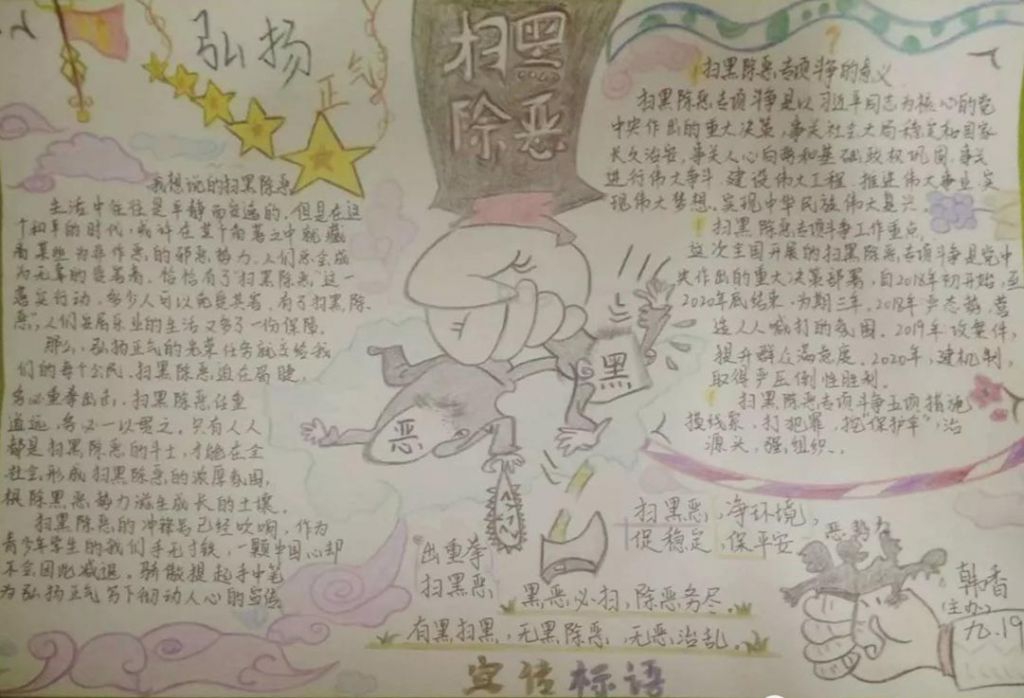 弘扬
正气
扫黑
除恶
我想说的扫黑除恶
生活中往往是平静而安逸的,但是在这
个和平的时代,或许在某个角落之中就藏
着某些为非作恶的邪恶势力,人们总会成
为无辜的受害者,恰恰有了“扫黑除恶”这一
恶”,人们安居乐业的生活又多了一份保障。
那么,弘扬正气的光荣任务就交给我
们的每个公民,扫黑除恶迫在眉睫,
务必重拳出击,扫黑除恶任重
道远,务必一以贯之,只有人人
都是扫黑除恶的斗士,才能在全
社会形成扫黑除恶的浓厚氛围,
根除黑恶势力滋生成长的土壤。
扫黑除恶的冲锋号已经吹响,作为
青少年学生的我们手无寸铁,一颗中国心却
不会因此减退,骄傲提起手中笔
为弘扬正气写下彻动人心的宣传
扫黑除恶专项斗争的意义
扫黑除恶专项斗争是以习近平同志为核心的党
中央作出的重大决策,事关社会大局稳定和国家
长久治安,事关人心向背和基础政权巩固,事关
进行伟大斗争,建设伟大工程,推进伟大事业,实
现伟大梦想,实现中华民族伟大复兴。
扫黑除恶专项斗争工作重点
这次全国开展的扫黑除恶专项斗争是党中
央作出的重大决策部署,自2018年初开始,至
2020年底结束,为期三年,2018年严态势,营
造人人喊打的氛围。2019年攻案件,
提升群众满意度。2020年,建机制,
取得严压倒性胜利。
扫黑除恶专项斗争五项措施
摸线索,打犯罪,挖“保护伞”,治
源头,强组织。
黑
恶
出重拳
扫黑恶
扫黑恶,净环境,
促稳定,保平安
黑恶必扫,除恶务尽。
有黑扫黑,无黑除恶,无恶治乱。
宣传标语
恶势力
韩香
(主办)
九.19